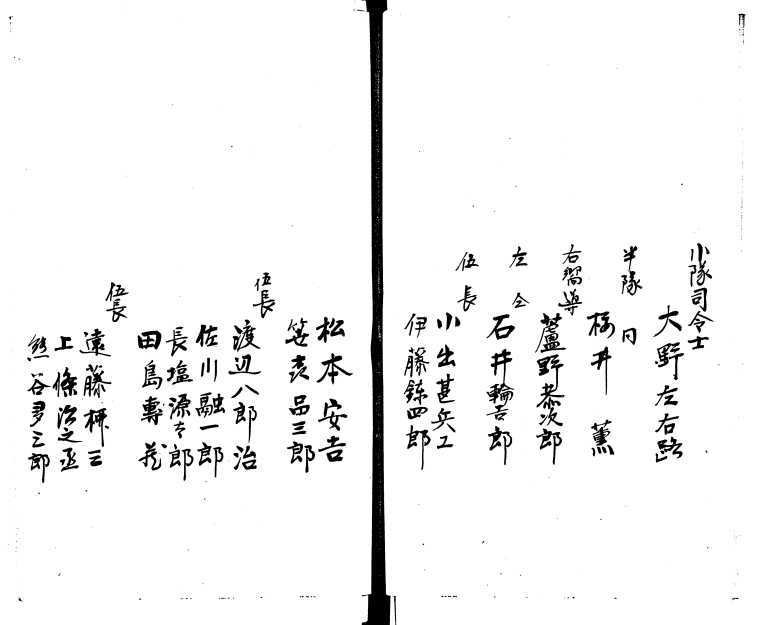 小隊司令士
大野左右路
半隊 同
桜井 薫
右嚮導
蘆野恭次郎
左 仝
石井輪吉郎
伍長
小出甚兵工
伊藤銕四郎
松本安吉
品三郎
伍長
渡辺八郎治
佐川融一郎
長塩源太郎
田島専蔵
伍長
遠藤柳三
上條治之丞
熊谷多三郎